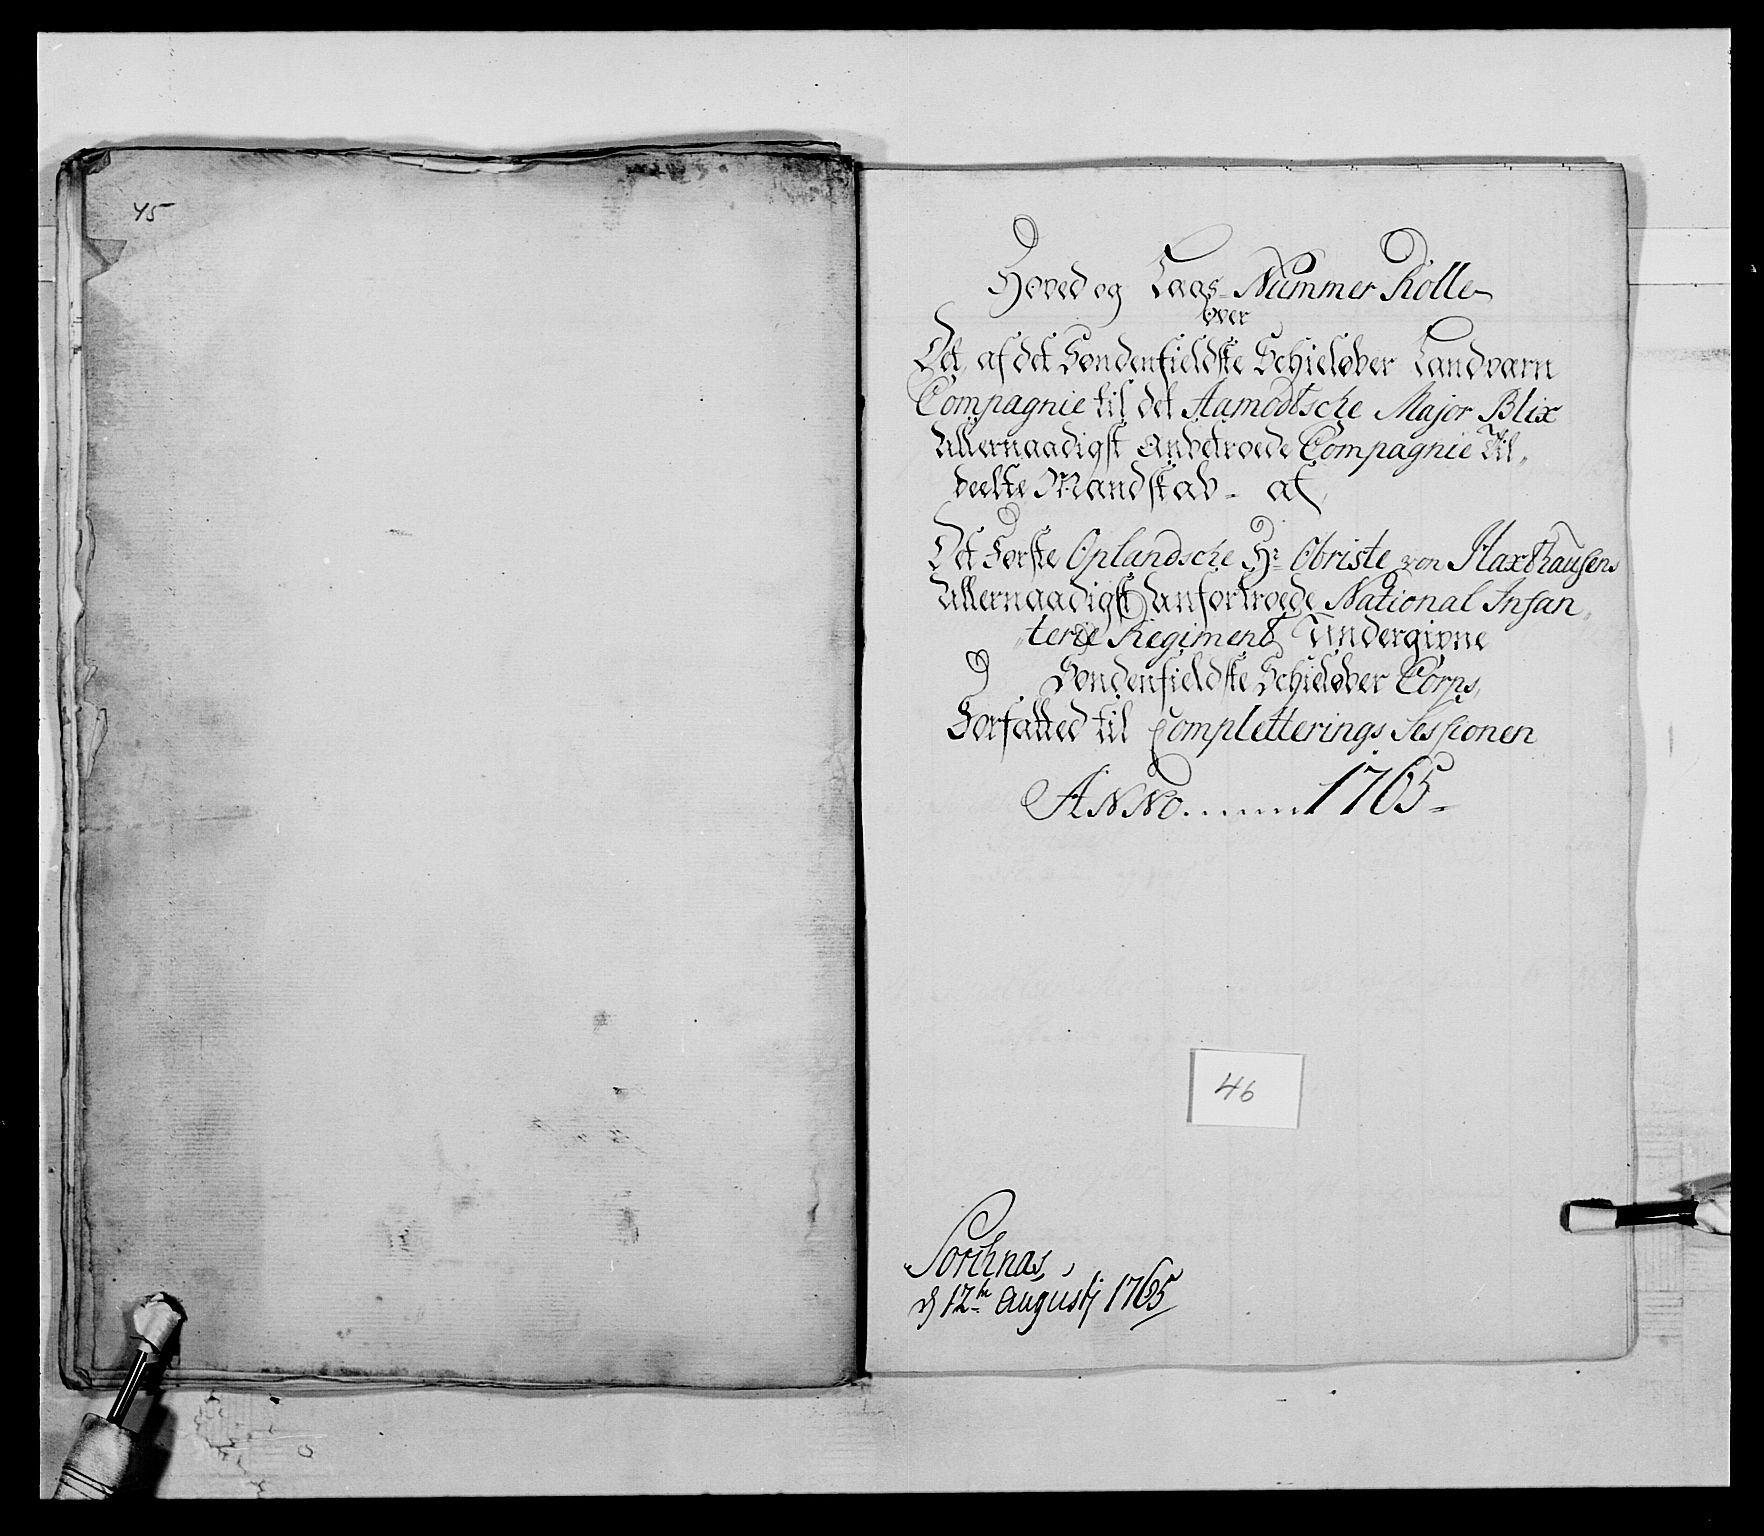 45
Hoved og Laas-Nummer Rolle
over
Det, af det Søndenfieldske Schieløber Landvarn
Compagnie til det Aamodtsche Major Blix
Allernaadigst Anbetroede Compagnie til„
deelte Mandskab - af
Det Første Oplandsche Hr Obriste von Haxthausens
Allernaadigst Anfortroede National Infan„
„terie Regiment Undergivne
Søndenfieldske Schieløber Corps,
Forfatted til Completterings Sessionen
ANNO.......1765-
46
d 12te Augustj 1765